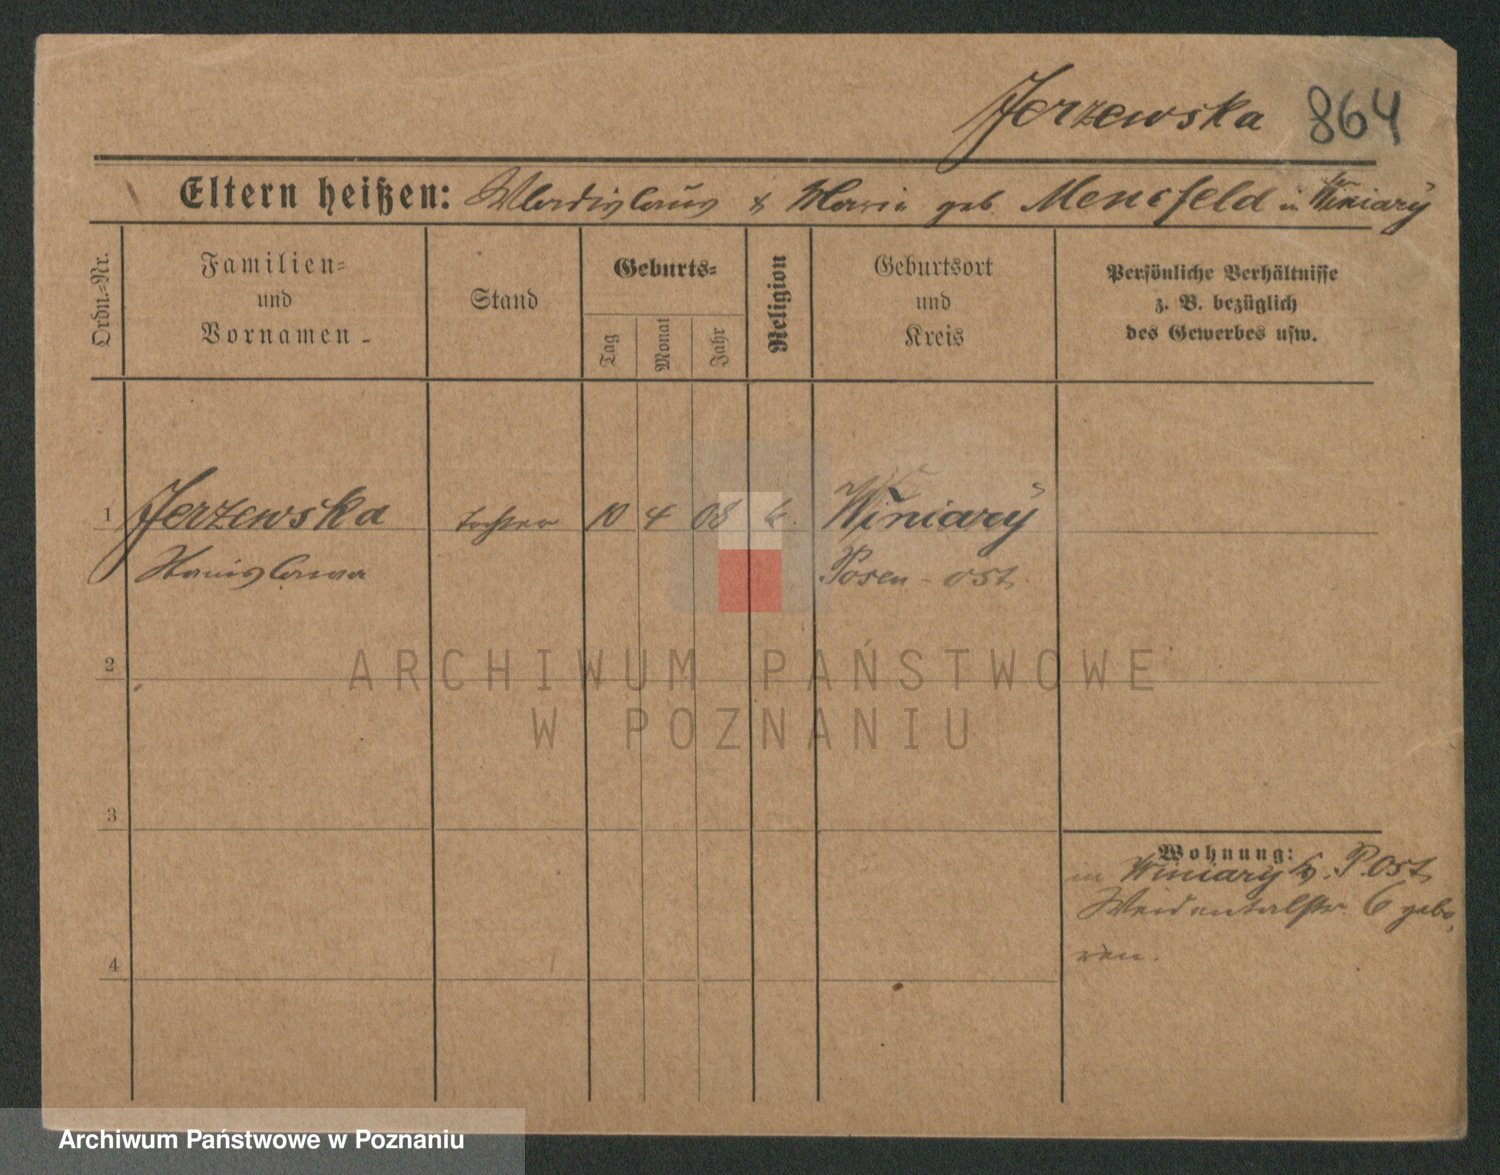 Jerzewska 864
Eltern heißen: Wladislaus & Maria geb. Mensfeld in Winiary
Ordn.-Nr.
Familien-
und
Vornamen
Stand
Geburts-
Tag
Monat
Jahr
Religion
Geburtsort
und
Kreis
Persönliche Verhältnisse
z. B. bezüglich
des Gewerbes usw.
1 Jerzewska Tochter 10 4 08 k. Winiary
Stanislawa Posen-Ost.
2
3
4
Wohnung:
in Winiary Kr. P. Ost.
Weidentalstr. 6 gebo
ren.
ARCHIWUM PAŃSTWOWE
W POZNANIU
Archiwum Państwowe w Poznaniu